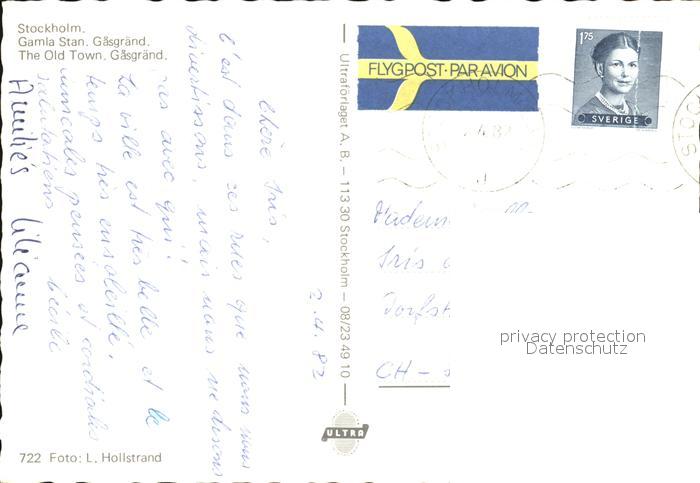 Stockholm.
Gamla Stan. Gåsgränd.
The Old Town. Gåsgränd.
FLYGPOST·PAR AVION
1.75
SVERIGE
Ultraförlaget A. B. – 113 30 Stockholm – 08/23 49 10
2.4.82
Chère Iris,
c'est dans ces rues que nous nous
divertissons, mais nous ne disons
pas avec qui!
La ville est très belle et le
temps très ensoleillé.
amicales pensées et cordiales
salutations Cécile
Amitiés Liliane
Iris
Dorfst
CH –
privacy protection
Datenschutz
ULTRA
722 Foto: L. Hollstrand